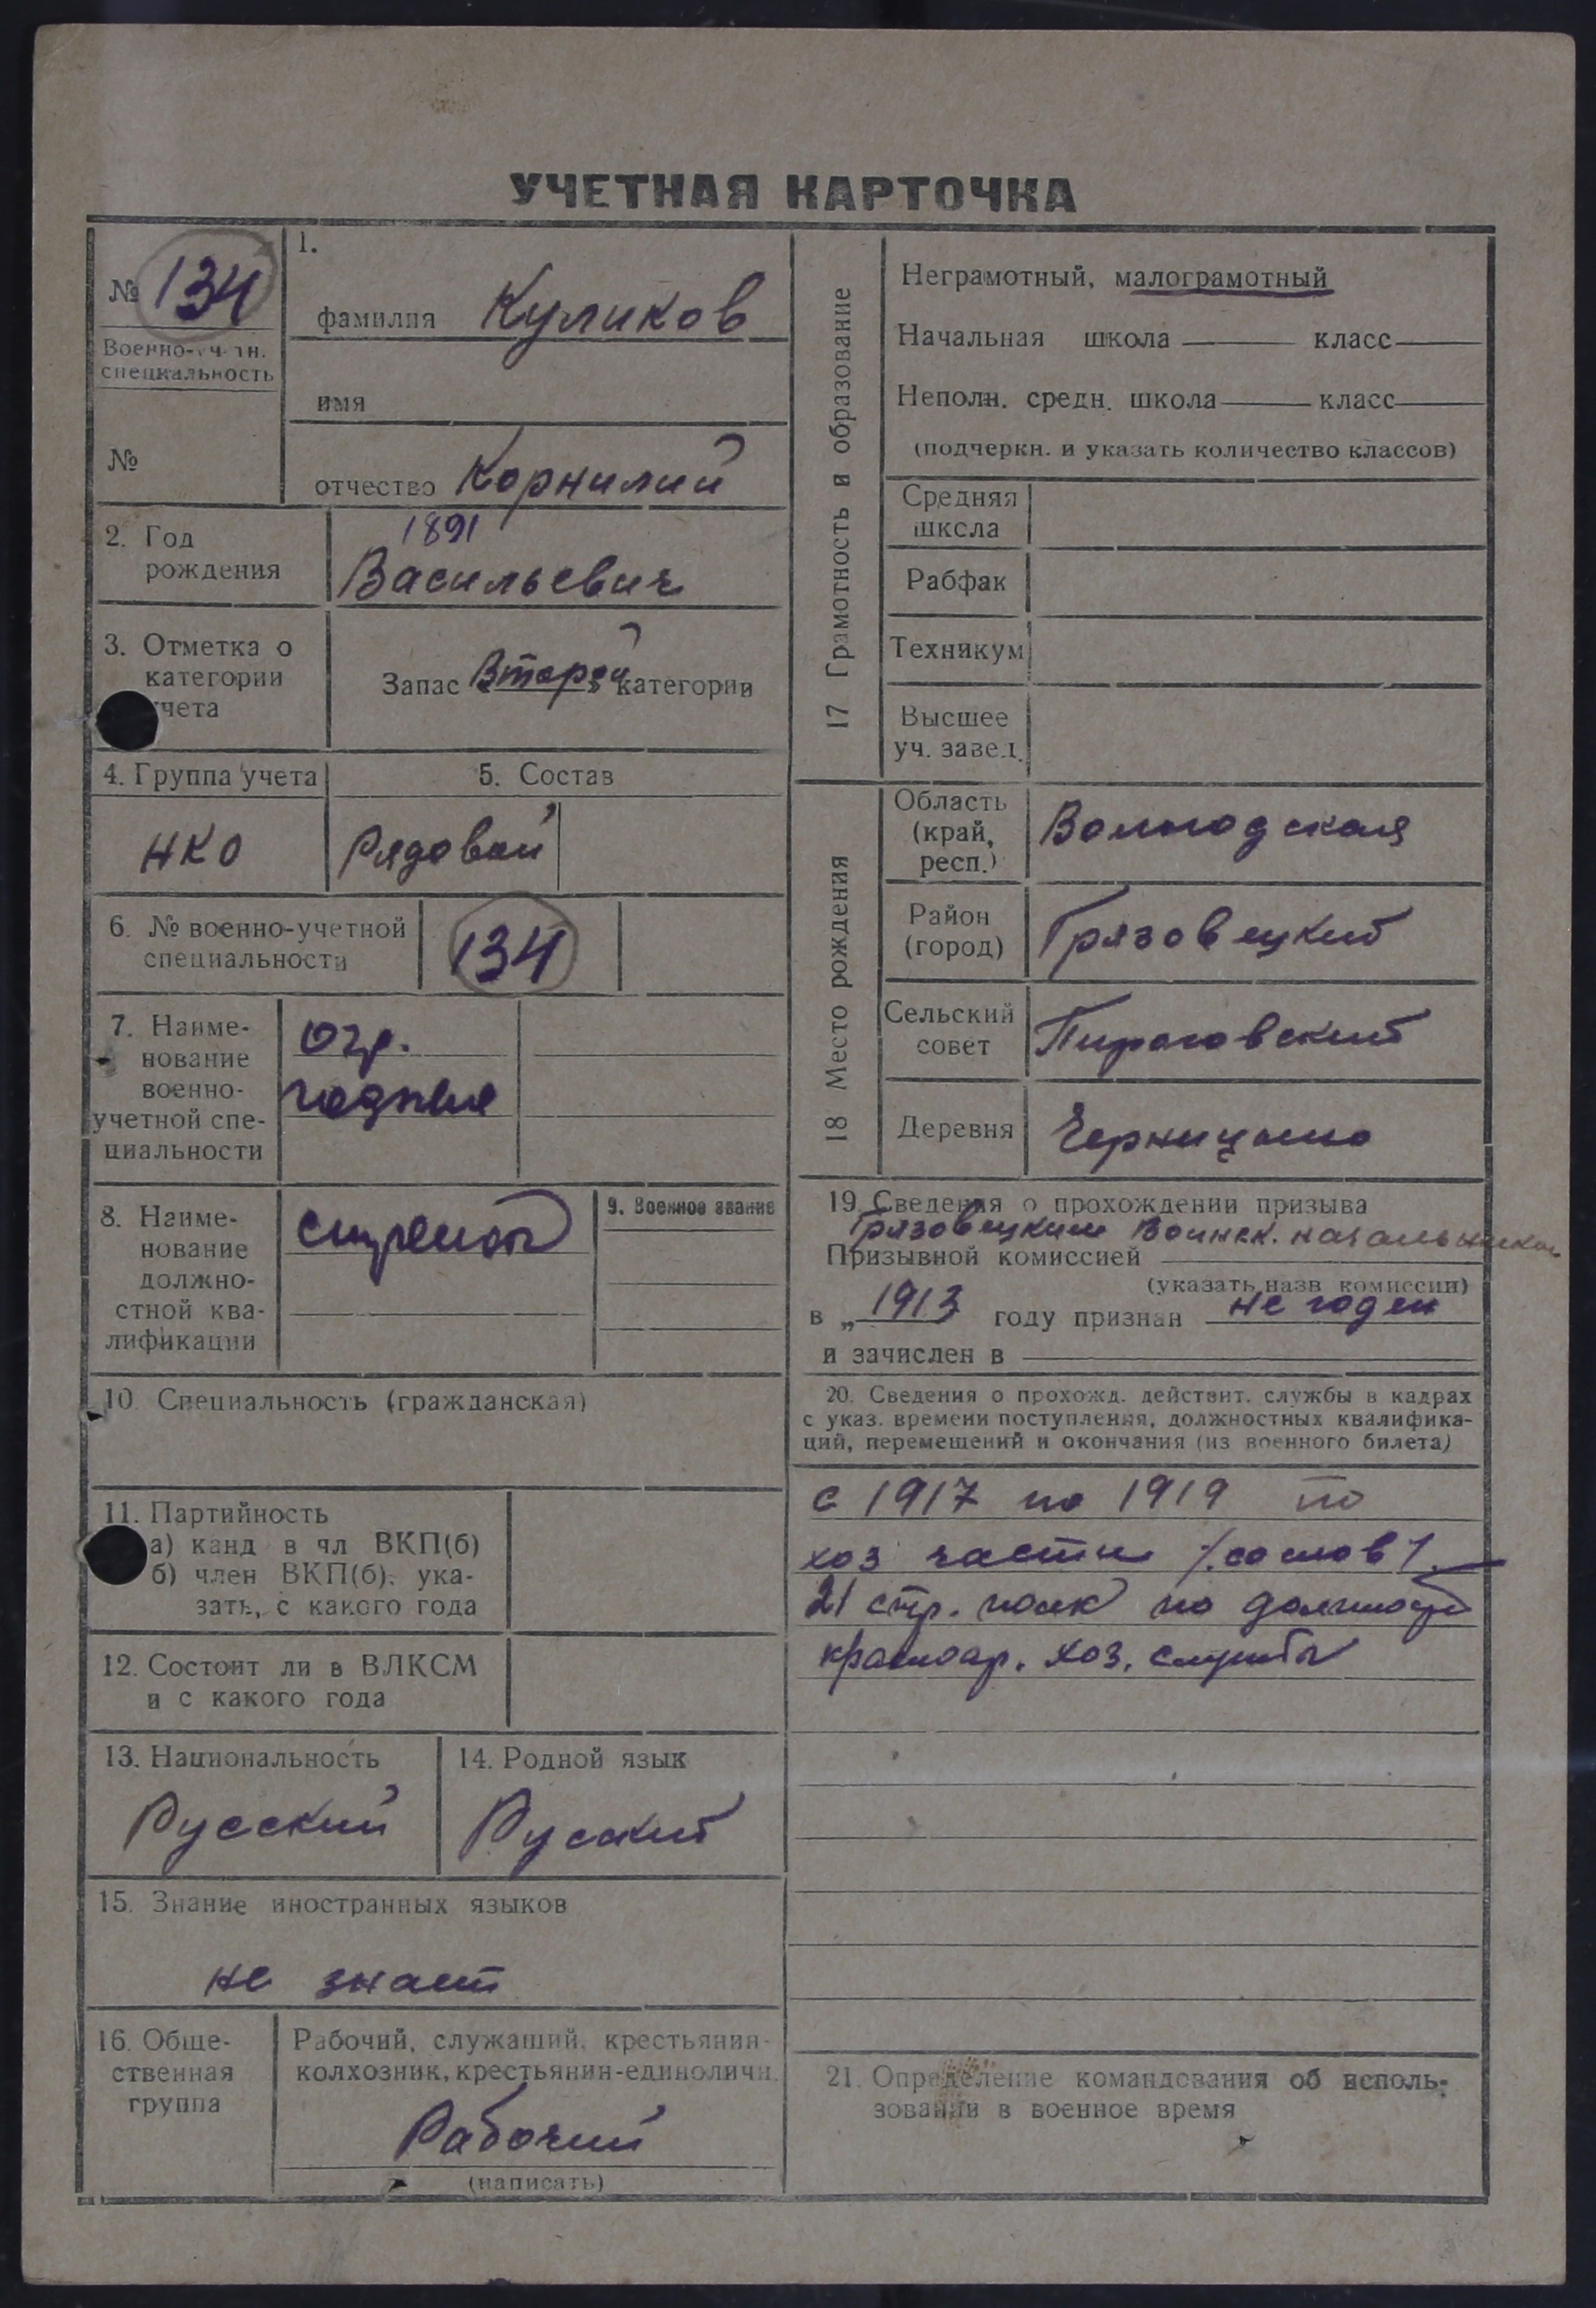 УЧЕТНАЯ КАРТОЧКА
№ 134
Военно-учетн.
специальность
№
1.
фамилия Куликов
имя
отчество Корнилий
2. Год
рождения
1891
Васильевич
3. Отметка о
категории
учета
Запас Второй категории
4. Группа учета
НКО
5. Состав
Рядовой
6. № военно-учетной
специальности
134
7. Наиме-
нование
военно-
учетной спе-
циальности
огр.
годные
8. Наиме-
нование
должно-
стной ква-
лификации
9. Военное звание
10. Специальность (гражданская)
11. Партийность
а) канд в чл ВКП(б)
б) член ВКП(б), ука-
зать, с какого года
12. Состоит ли в ВЛКСМ
и с какого года
13. Национальность
Русский
14. Родной язык
Русский
15. Знание иностранных языков
не знает
16. Обще-
ственная
группа
Рабочий, служащий, крестьянин-
колхозник, крестьянин-единоличн.
Рабочий
(написать)
17 Грамотность и образование
Неграмотный, малограмотный
Начальная школа класс
Неполн. средн. школа класс
(подчеркн. и указать количество классов)
Средняя
школа
Рабфак
Техникум
Высшее
уч. завед.
18 Место рождения
Область
(край,
респ.)
Вологодская
Район
(город)
Грязовецкий
Сельский
совет
Пироговский
Деревня
19. Сведения о прохождении призыва
Грязовецким Воинск. начальником
Призывной комиссией
(указать назв комиссии)
в „1913 году признан не годен
и зачислен в
20. Сведения о прохожд. действит. службы в кадрах
с указ. времени поступления, должностных квалифика-
ций, перемещений и окончания (из военного билета)
с 1917 по 1919 по
хоз части /со слов/.
21 стр. полк по должности
красноар. хоз. службы
21. Определение командования об исполь-
зовании в военное время